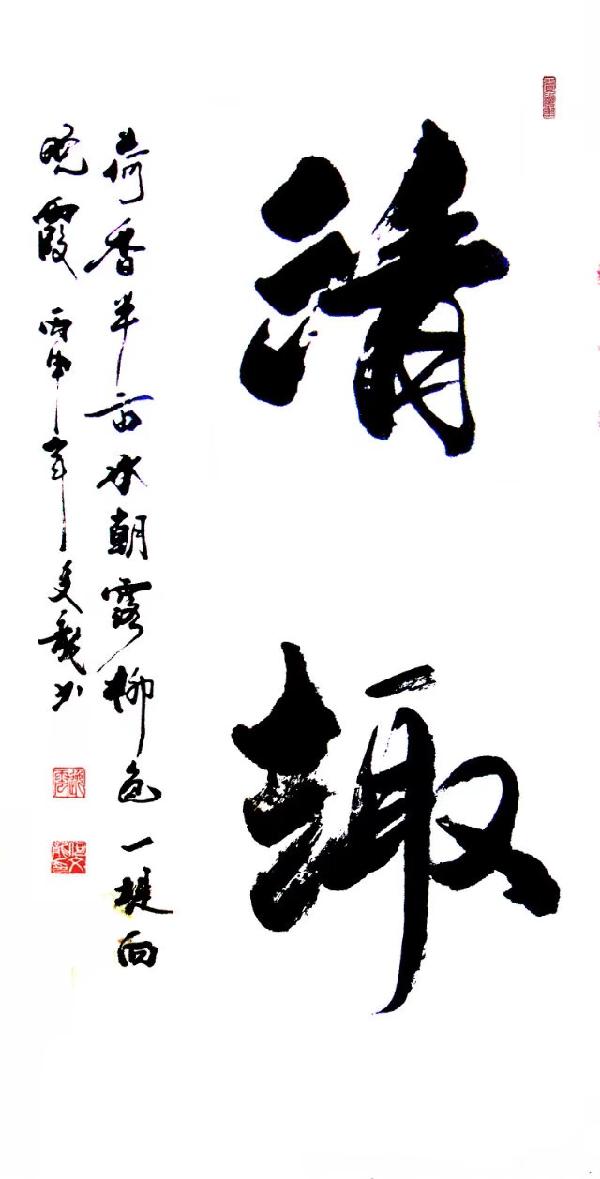 清趣
荷香半亩承朝露柳色一堤向
晚霞 丙申年 书